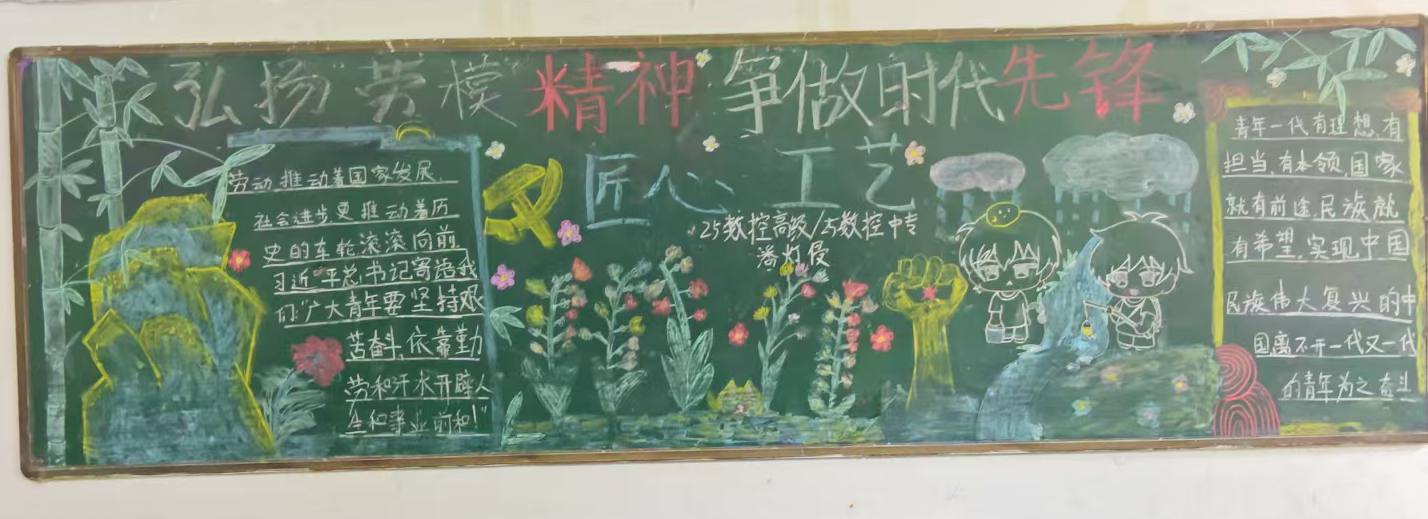 弘扬"劳模"精神 争做时代先锋
匠心 工艺
25数控高级/25数控中专
劳动推动着国家发展,
社会进步更推动着历
史的车轮滚滚向前
习近平总书记寄语我
们:"广大青年要坚持艰
苦奋斗,依靠勤
劳和汗水开辟人
生和事业前程!"
青年一代有理想,有
担当,有本领,国家
就有前途,民族就
有希望,实现中国
民族伟大复兴的中
国离不开一代又一代
的青年为之奋斗